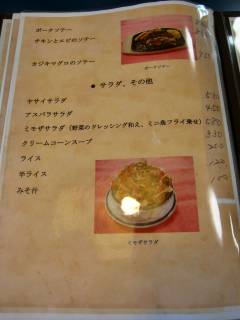 ポークソテー
チキンとエビのソテー
カジキマグロのソテー
ポークソテー
● サラダ、その他
ヤサイサラダ
アスパラサラダ 450
ミモザサラダ (野菜のドレッシング和え、ミニ魚フライ乗せ) 580
クリームコーンスープ 330
ライス 200
半ライス 120
みそ汁 100
ミモザサラダ